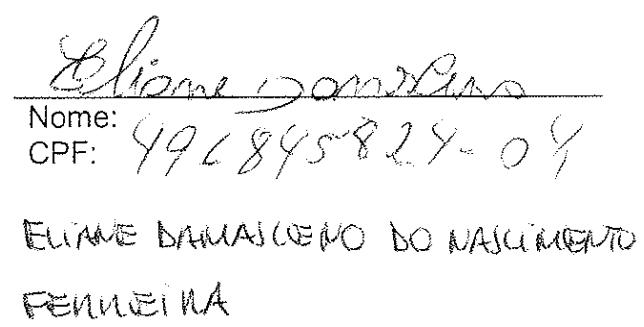 Eliane Damasceno
Nome:
CPF: 496845824-04
ELIANE DAMASCENO DO NASCIMENTO
FERREIRA